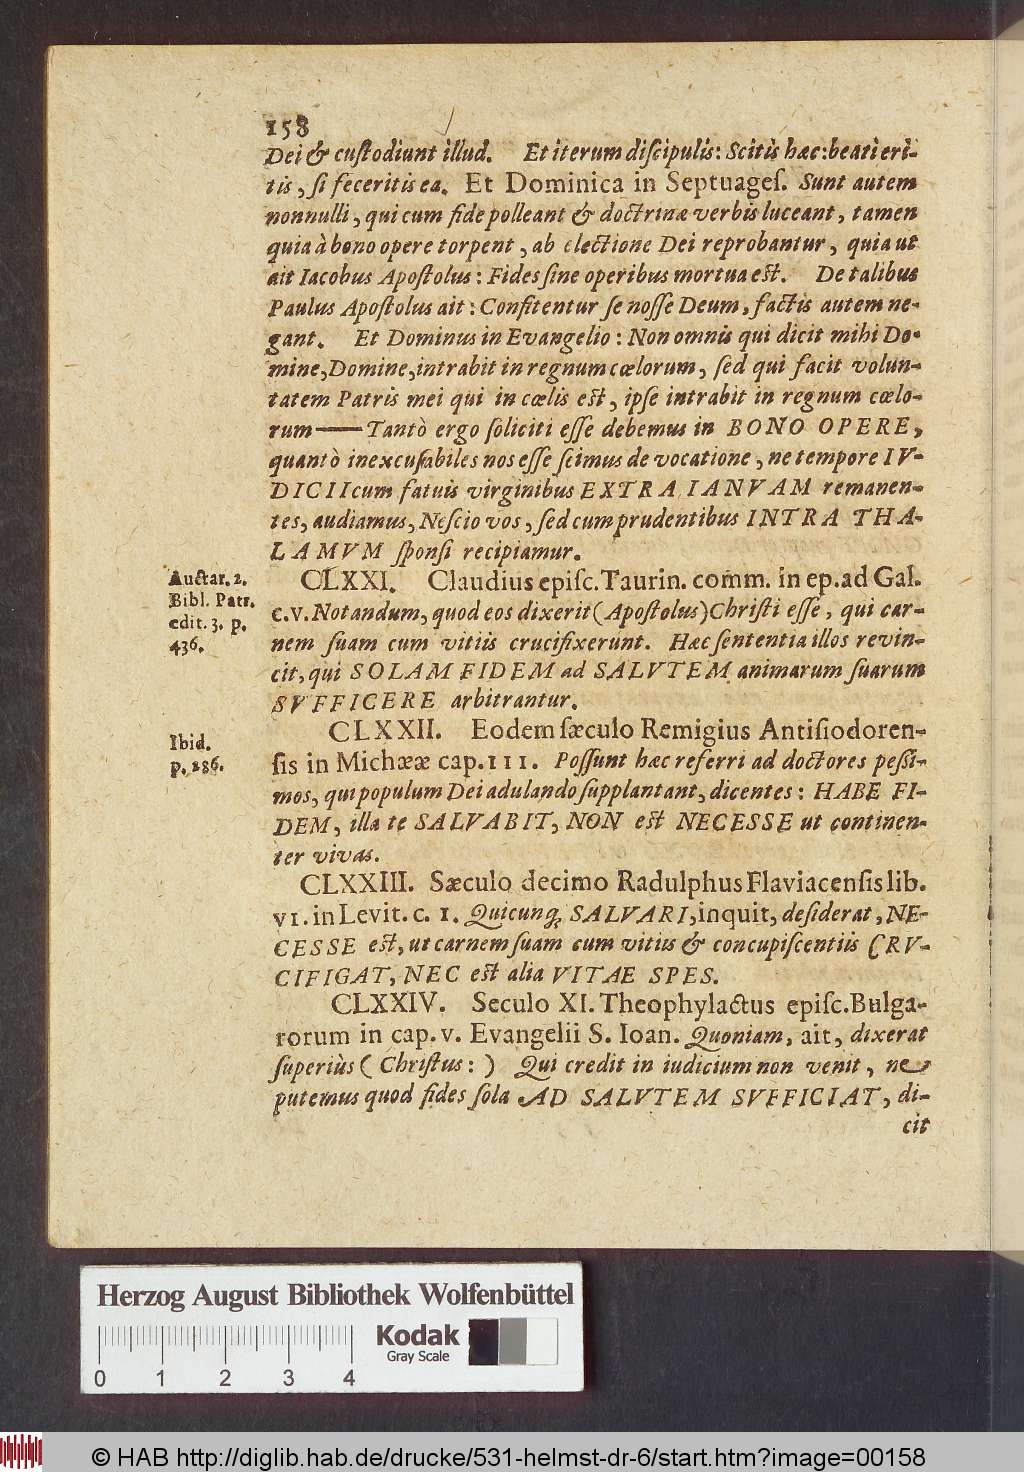 158
Dei & cuſtodiunt illud. Et iterum diſcipulis: Scitis hæc: beati eri-
tis, ſi feceritis ea. Et Dominica in Septuageſ. Sunt autem
nonnulli, qui cum fide polleant & doctrinæ verbis luceant, tamen
quia à bono opere torpent, ab electione Dei reprobantur, quia ut
ait Iacobus Apoſtolus: Fides ſine operibus mortua eſt. De talibus
Paulus Apoſtolus ait: Confitentur ſe noſſe Deum, factis autem ne-
gant. Et Dominus in Evangelio: Non omnis qui dicit mihi Do-
mine, Domine, intrabit in regnum cœlorum, ſed qui facit volun-
tatem Patris mei qui in cœlis eſt, ipſe intrabit in regnum cœlo-
rum—— Tantò ergo ſoliciti eſſe debemus in BONO OPERE,
quantò inexcuſabiles nos eſſe ſcimus de vocatione, ne tempore IV-
DICII cum fatuis virginibus EXTRA IANVAM remanen-
tes, audiamus, Neſcio vos, ſed cum prudentibus INTRA THA-
LAMVM ſponſi recipiamur.
Auctar. 2.
Bibl. Patr.
edit. 3. p.
436.
CLXXI. Claudius epiſc. Taurin. comm. in ep. ad Gal.
c. V. Notandum, quod eos dixerit (Apoſtolus) Chriſti eſſe, qui car-
nem ſuam cum vitiis crucifixerunt. Hæc ſententia illos revin-
cit, qui SOLAM FIDEM ad SALVTEM animarum ſuarum
SVFFICERE arbitrantur.
Ibid.
p. 286.
CLXXII. Eodem ſæculo Remigius Antiſiodoren-
ſis in Michææ cap. III. Poſſunt hæc referri ad doctores peſſi-
mos, qui populum Dei adulando ſupplantant, dicentes: HABE FI-
DEM, illa te SALVABIT, NON eſt NECESSE ut continen-
ter vivas.
CLXXIII. Sæculo decimo Radulphus Flaviacenſis lib.
VI. in Levit. c. I. Quicunq; SALVARI, inquit, deſiderat, NE-
CESSE eſt, ut carnem ſuam cum vitiis & concupiſcentiis CRV-
CIFIGAT, NEC eſt alia VITAE SPES.
CLXXIV. Seculo XI. Theophylactus epiſc. Bulga-
rorum in cap. v. Evangelii S. Ioan. Quoniam, ait, dixerat
ſuperiùs (Chriſtus:) Qui credit in iudicium non venit, ne
putemus quod fides ſola AD SALVTEM SVFFICIAT, di-
cit
Herzog August Bibliothek Wolfenbüttel
Kodak
Gray Scale
0 1 2 3 4
© HAB http://diglib.hab.de/drucke/531-helmst-dr-6/start.htm?image=00158